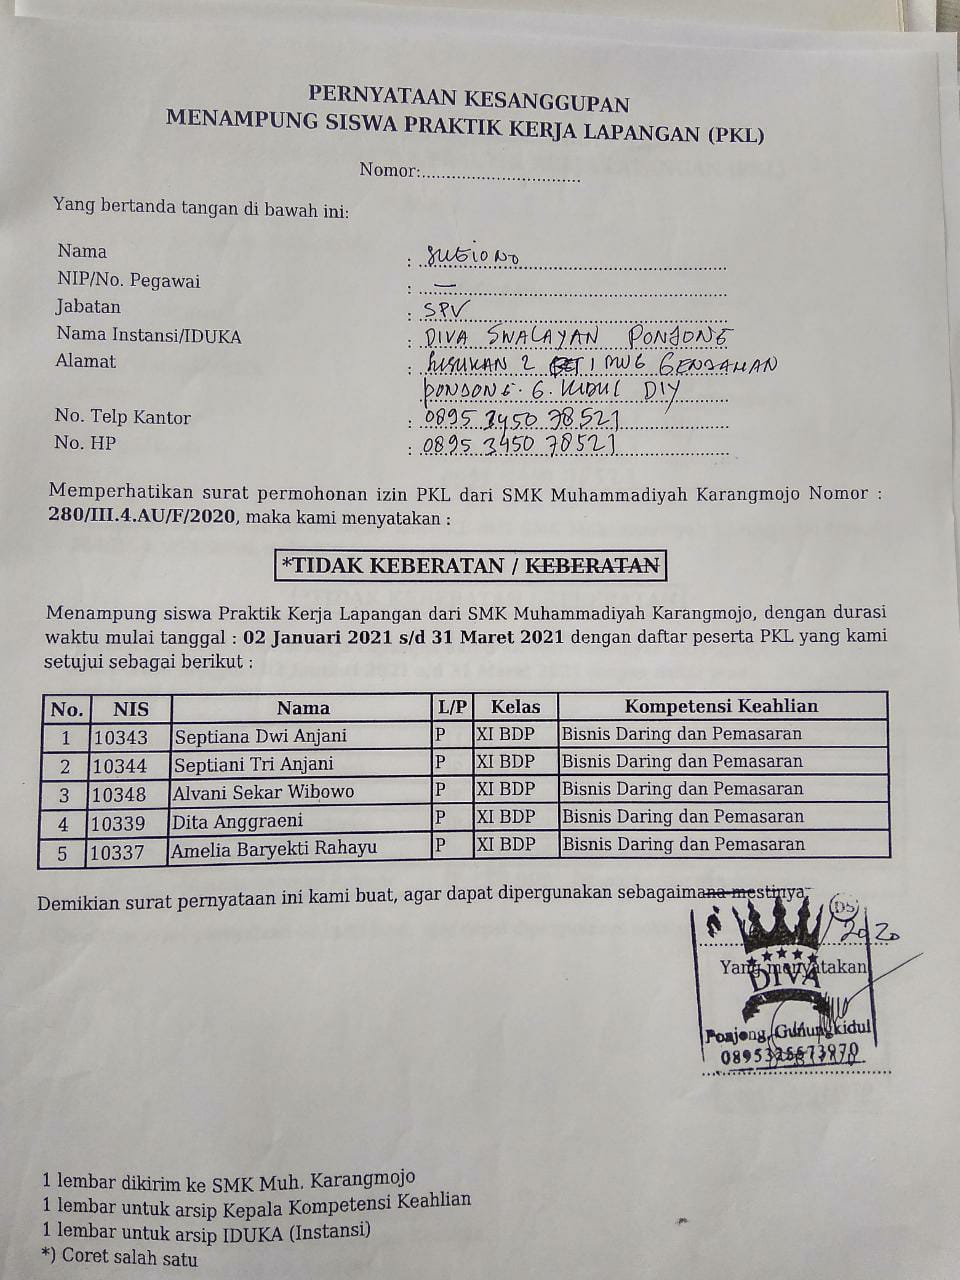 PERNYATAAN KESANGGUPAN
MENAMPUNG SISWA PRAKTIK KERJA LAPANGAN (PKL)
Nomor:................................
Yang bertanda tangan di bawah ini:
Nama : SUGIONO
NIP/No. Pegawai : —
Jabatan : SPV
Nama Instansi/IDUKA : DIVA SWALAYAN PONJONG
Alamat : SUSUKAN 2 GENJAHAN
PONJONG. G. KIDUL DIY
No. Telp Kantor : 0895 3450 78521
No. HP : 0895 3450 78521
Memperhatikan surat permohonan izin PKL dari SMK Muhammadiyah Karangmojo Nomor :
280/III.4.AU/F/2020, maka kami menyatakan :
*TIDAK KEBERATAN / KEBERATAN
Menampung siswa Praktik Kerja Lapangan dari SMK Muhammadiyah Karangmojo, dengan durasi
waktu mulai tanggal : 02 Januari 2021 s/d 31 Maret 2021 dengan daftar peserta PKL yang kami
setujui sebagai berikut :
No. NIS Nama L/P Kelas Kompetensi Keahlian
1 10343 Septiana Dwi Anjani P XI BDP Bisnis Daring dan Pemasaran
2 10344 Septiani Tri Anjani P XI BDP Bisnis Daring dan Pemasaran
3 10348 Alvani Sekar Wibowo P XI BDP Bisnis Daring dan Pemasaran
4 10339 Dita Anggraeni P XI BDP Bisnis Daring dan Pemasaran
5 10337 Amelia Baryekti Rahayu P XI BDP Bisnis Daring dan Pemasaran
Demikian surat pernyataan ini kami buat, agar dapat dipergunakan sebagaimana mestinya.
DS
/2020
Yang menyatakan
DIVA
Ponjong, Gunungkidul
1 lembar dikirim ke SMK Muh. Karangmojo
1 lembar untuk arsip Kepala Kompetensi Keahlian
1 lembar untuk arsip IDUKA (Instansi)
*) Coret salah satu